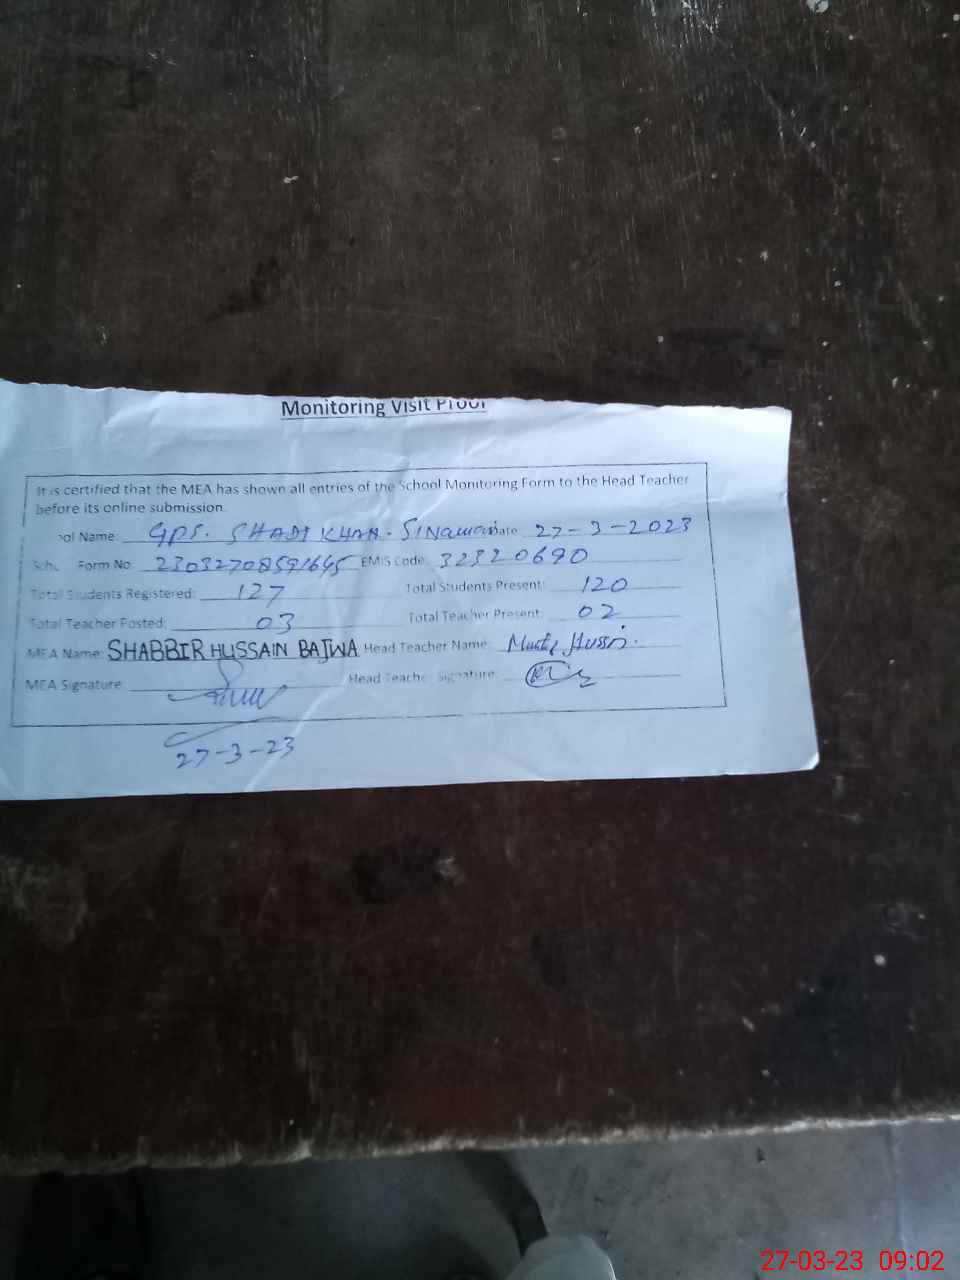 Monitoring Visit Proof
It is certified that the MEA has shown all entries of the School Monitoring Form to the Head Teacher
before its online submission.
ool Name: GPS. SHADI KHAN. SINawan ate 27-3-2023
Form No: EMIS Code: 32320690
Total Students Registered: 127 Total Students Present: 120
Total Teacher Posted: 03 Total Teacher Present: 02
MEA Name: SHABBIR HUSSAIN BAJWA Head Teacher Name
MEA Signature Head Teacher Signature:
27-3-23
27-03-23 09:02